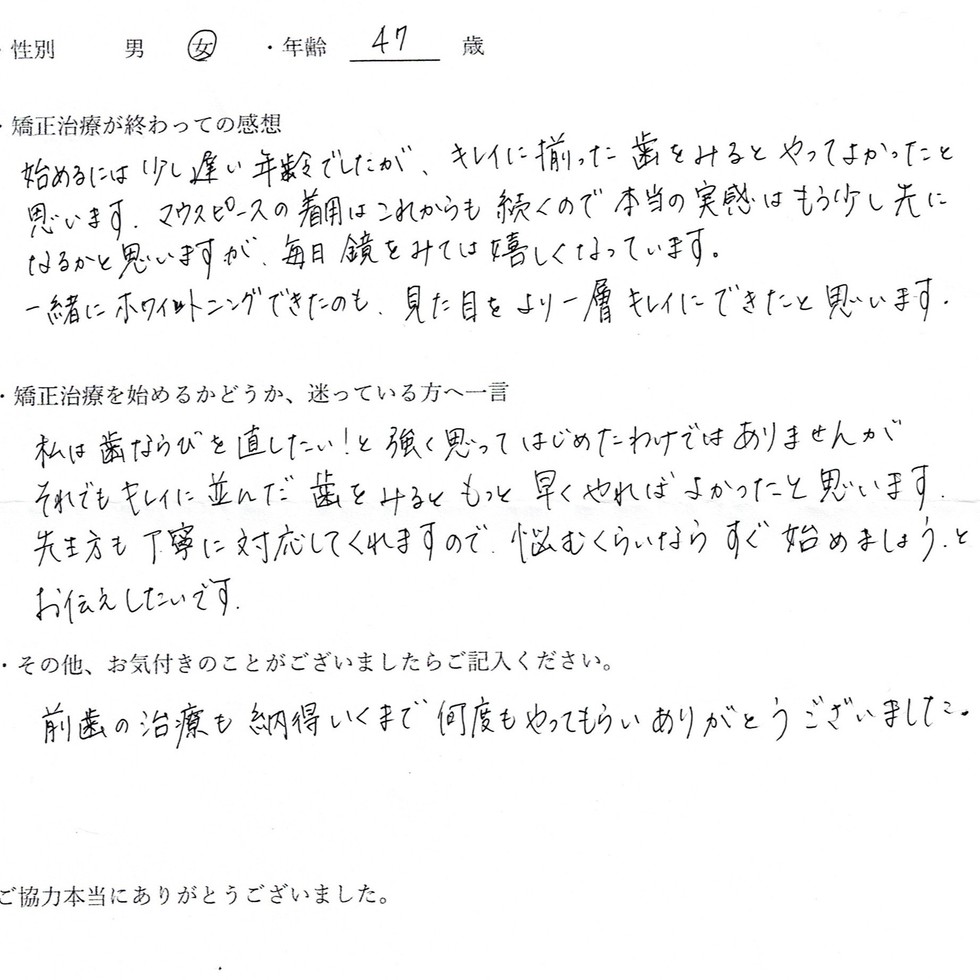 ・性別 男 女 ・年齢 47 歳
・矯正治療が終わっての感想
始めるには少し遅い年齢でしたが、キレイに揃った歯をみるとやってよかったと
思います。マウスピースの着用はこれからも続くので本当の実感はもう少し先に
なるかと思いますが、毎日鏡をみては嬉しくなっています。
一緒にホワイトニングできたのも、見た目をより一層キレイにできたと思います。
・矯正治療を始めるかどうか、迷っている方へ一言
私は歯ならびを直したい！と強く思ってはじめたわけではありませんが
それでもキレイに並んだ歯をみるともっと早くやればよかったと思います。
先生方も丁寧に対応してくれますので、悩むくらいならすぐ始めましょう。と
お伝えしたいです。
・その他、お気付きのことがございましたらご記入ください。
前歯の治療も納得いくまで何度もやってもらいありがとうございました。
ご協力本当にありがとうございました。